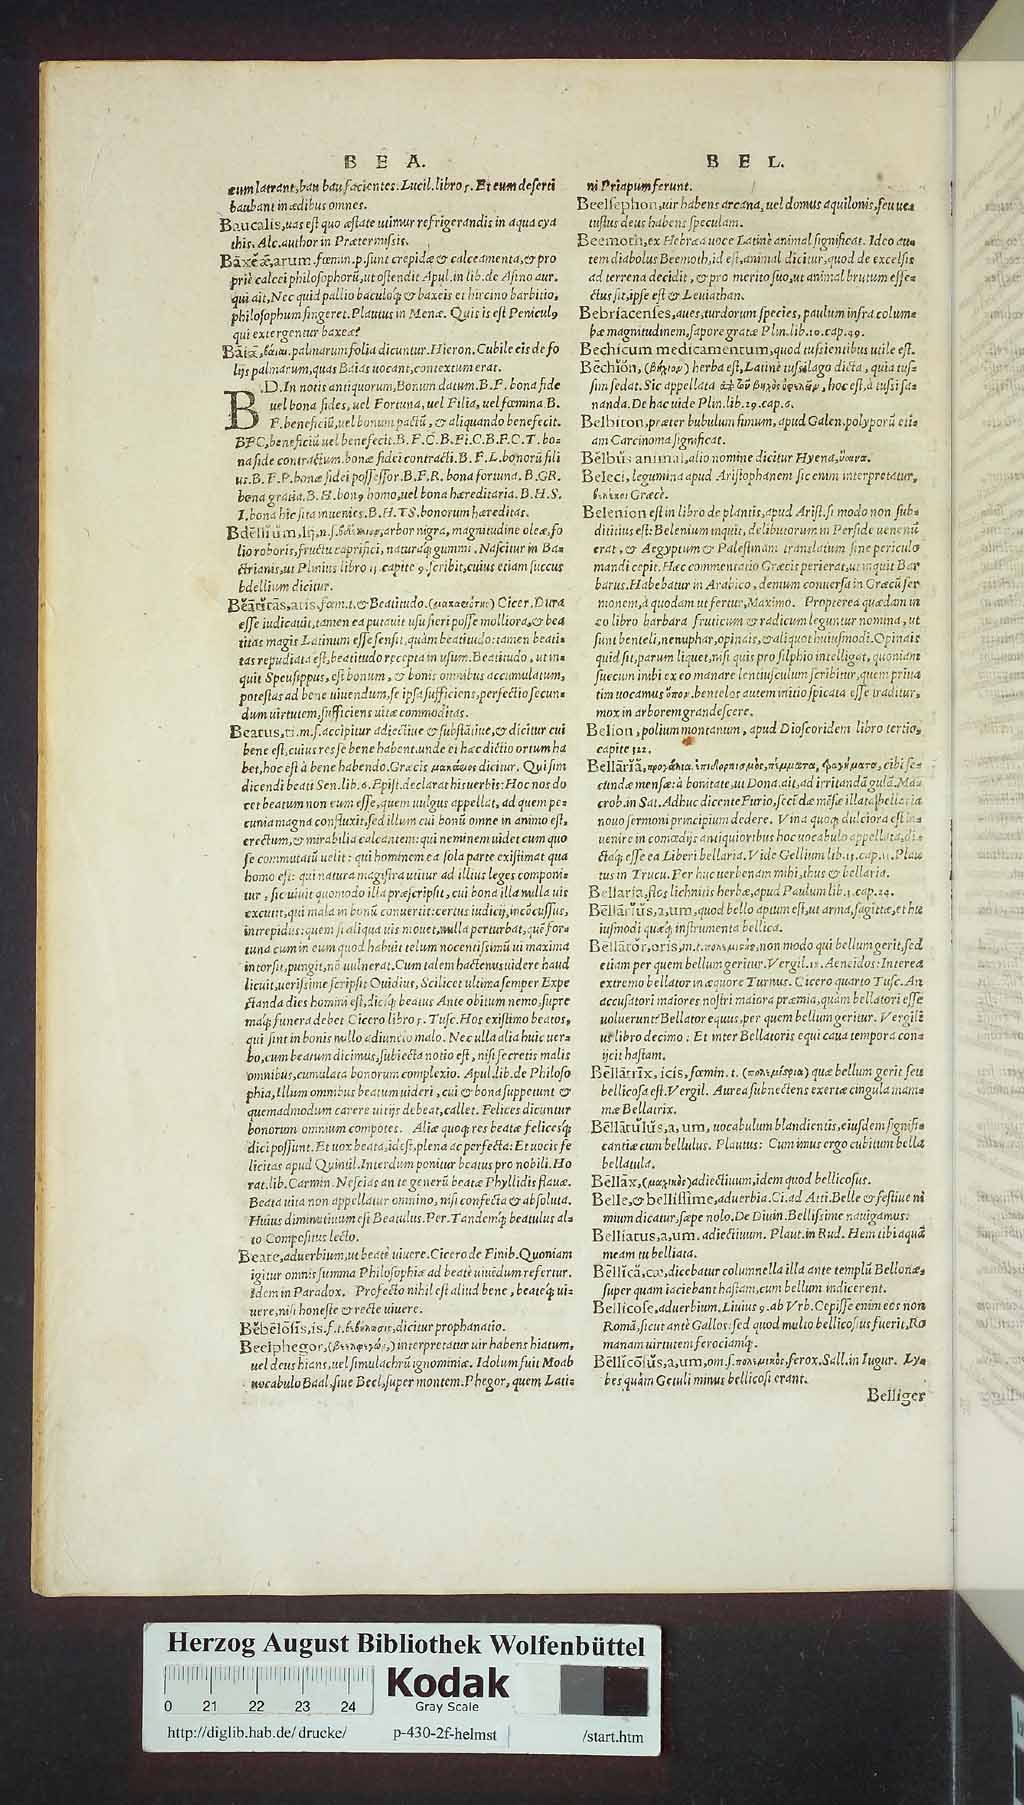 B E A.
cum latrant, bau bau facientes: Lucil. libro 5. Et cum deserti
baubant in ædibus omnes.
Baucalis, uas est quo æstate utimur refrigerandis in aqua cya
this. Alc. author in Prætermissis.
Bāxĕæ̆, arum. fœmin. p. sunt crepidæ & calceamenta, & pro
priè calcei philosophorũ, ut ostendit Apul. in lib. de Asino aur.
qui ait, Nec quid pallio baculoq́; & baxeis et hircino barbitio,
philosophum fingeret. Plautus in Menæ. Quis is est Peniculꝰ
qui extergentur baxeæ?
Bāĭæ, βαῖαι. palmarum folia dicuntur. Hieron. Cubile eis de fo
lijs palmarum, quas Baias uocant, contextum erat.
B .D. In notis antiquorum, Bonum datum. B. F. bona fide
uel bona fides, uel Fortuna, uel Filia, uel fœmina B.
F. beneficiũ, uel bonum pactũ, & aliquando benefecit.
BFC, beneficiũ uel benefecit. B. F. C. B. Fi. C. B. F. C. T. bo=
na fide contractum. bonæ fidei contracti. B. F. L. bonorũ fili
us. B. F. P. bonæ fidei possessor. B. F. R. bona fortuna. B. GR.
bona gratia. B. H. bonꝰ homo, uel bona hæreditaria. B. H. S.
I. bona hic sita inuenies. B. H. TS. bonorum hæreditas.
Bdēllĭŭm, lij, n. s. βδέλλιον, arbor nigra, magnitudine oleæ, fo
lio roboris, fructu caprifici, naturaq́; gummi. Nascitur in Ba=
ctrianis, ut Plinius libro 12 capite 9. scribit, cuius etiam succus
bdellium dicitur.
Bĕātĭtās, atis. fœm. t. & Beatitudo. (μακαριότης) Cicer. Dura
esse iudicauit, tamen ea putauit usu fieri posse molliora, & bea
titas magis Latinum esse sensit, quàm beatitudo: tamen beati=
tas repudiata est, beatitudo recepta in usum. Beatitudo, ut in=
quit Speusippus, est bonum, & bonis omnibus accumulatum,
potestas ad bene uiuendum, se ipsa sufficiens, perfectio secun=
dum uirtutem, sufficiens uitæ commoditas.
Beatus, ti. m. s. accipitur adiectiue & substātiue, & dicitur cui
bene est, cuius res se bene habent. unde ei hac dictio ortum ha
bet, hoc est à bene habendo. Græcis μακάριος dicitur. Qui sim
dicendi beati Sen. lib. 6. Epist. declarat his uerbis: Hoc nos do
cet beatum non eum esse, quem uulgus appellat, ad quem pe=
cunia magna confluxit, sed illum cui bonũ omne in animo est,
erectum, & mirabilia calcantem: qui neminem uidet cum quo
se commutatũ uelit: qui hominem ea sola parte existimat qua
homo est: qui natura magistra utitur ad illius leges componi=
tur, sic uiuit quomodo illa præscripsit, cui bona illa nulla uis
excutit, qui mala in bonũ conuertit: certus iudicij, incõcussus,
intrepidus: quem si aliqua uis mouet, nulla perturbat, quē for=
tuna cum in eum quod habuit telum nocentissimũ ui maxima
intorsit, pungit, nõ uulnerat. Cum talem hactenus uidere haud
licuit, uerissime scripsit Ouidius, Scilicet ultima semper Expe
ctanda dies homini est, diciq́; beatus Ante obitum nemo, supre
maq́; funera debet Cicero libro 5. Tusc. Hos existimo beatos,
qui sint in bonis nullo adiuncto malo. Nec ulla alia huic uer=
bo, cum beatum dicimus, subiecta notio est, nisi secretis malis
omnibus, cumulata bonorum complexio. Apul. lib. de Philoso
phia, Illum omnibus beatum uideri, cui & bona suppetunt &
quemadmodum carere uitijs debeat, callet. Felices dicuntur
bonorum omnium compotes. Aliæ quoq́; res beatæ felicesq́;
dici possunt. Et uox beata, id est, plena ac perfecta: Et uocis fe
licitas apud Quintil. Interdum ponitur beatus pro nobili. Ho
rat. lib. Carmin. Nescias an te generũ beatæ Phyllidis flauæ.
Beata uita non appellatur omnino, nisi confecta & absoluta.
Huius diminutiuum est Beatulus. Per. Tandemq́; beatulus al=
to Compositus lecto.
Beate, aduerbium, ut beatè uiuere. Cicero de Finib. Quoniam
igitur omnis summa Philosophiæ ad beatè uiuēdum refertur.
Idem in Paradox. Profecto nihil est aliud bene, beateq́; ui=
uere, nisi honeste & recte uiuere.
Bĕbēlōsĭs, is. f. t. βεβήλωσις, dicitur prophanatio.
Beelphegor, (βεελφεγώρ,) interpretatur uir habens hiatum,
uel deus hians, uel simulachrũ ignominiæ. Idolum fuit Moab
uocabulo Baal, siue Beel, super montem. Phegor, quem Lati=
B E L.
ni Priapum ferunt.
Beelsephon, uir habens arcana, uel domus aquilonis, seu ue=
tustus deus habens speculam.
Beemoth, ex Hebræa uoce Latinè animal significat. Ideo au=
tem diabolus Beemoth, id est, animal dicitur, quod de excelsis
ad terrena decidit, & pro merito suo, ut animal brutum effe=
ctus sit, ipse est & Leuiathan.
Bebriacenses, aues, turdorum species, paulum infra colum=
bæ magnitudinem, sapore gratæ Plin. lib. 10. cap. 49.
Bechicum medicamentum, quod tussientibus utile est.
Bēchĭŏn, (βήχιον) herba est, Latinè tussilago dicta, quia tus=
sim sedat. Sic appellata ἀπὸ τοῦ βηχὸς ὠφελεῖν, hoc est, à tussi sa=
nanda. De hac uide Plin. lib. 29. cap. 6.
Belbiton, præter bubulum fimum, apud Galen. polyporũ eti=
am Carcinoma significat.
Bēlbŭs animal, alio nomine dicitur Hyena, ὕαινα.
Beleci, legumina apud Aristophanem sic enim interpretatur,
βελέκοι Græcè.
Belenion est in libro de plantis, apud Arist. si modo non sub=
dititius est: Belenium inquit, delibutorum in Perside uenenũ
erat, & Aegyptum & Palestinam translatum sine periculo
mandi cepit. Hæc commentatio Græcis perierat, ut inquit Bar
barus. Habebatur in Arabico, demum conuersa in Græcũ ser
monem, à quodam ut fertur, Maximo. Propterea quædam in
eo libro barbara fruticum & radicum leguntur nomina, ut
sunt benteli, nenuphar, opinais, & aliquot huiusmodi. Opinais
quid sit, parum liquet, nisi quis pro silphio intelligat, quoniam
succum imbi ex eo manare lentiusculum scribitur, quem priua
tim uocamus ὀπόν. bentelos autem initio spicata esse traditur,
mox in arborem grandescere.
Belion, polium montanum, apud Dioscoridem libro tertio,
capite 122.
Bēllārĭă, προγάλια, ἐπιδορπισμὸς, πέμματα, τραγήματα, cibi se=
cundæ mensæ: à bonitate, ut Dona. ait, ad irritandā gulā. Ma=
crob. in Sat. Adhuc dicente Furio, secũdæ mēsæ illata bellaria
nouo sermoni principium dedere. Vina quoq́; dulciora est in=
uenire in comœdijs antiquioribus hoc uocabulo appellata, di=
ctaq́; esse ea Liberi bellaria. Vide Gellium lib. 13. cap. 11. Plau
tus in Trucu. Fer huc uerbenam mihi, thus & bellaria.
Bellaria, flos lichnitis herbæ, apud Paulum lib. 3. cap. 24.
Bēllārĭŭs, a, um, quod bello aptum est, ut arma, sagittæ, et hu
iusmodi quæq́; instrumenta bellica.
Bēllātŏr, oris, m. t. πολεμιστὴς, non modo qui bellum gerit, sed
etiam per quem bellum geritur. Vergil. 12. Aeneidos: Interea
extremo bellator in æquore Turnus. Cicero quarto Tusc. An
accusatori maiores nostri maiora præmia, quàm bellatori esse
uoluerunt? Bellator equus, per quem bellum geritur. Vergili=
us libro decimo: Et inter Bellatoris equi caua tempora con=
ijcit hastam.
Bēllātrīx, icis, fœmin. t. (πολεμίστρια) quæ bellum gerit seu
bellicosa est. Vergil. Aurea subnectens exertæ cingula mam=
mæ Bellatrix.
Bēllātŭlŭs, a, um, uocabulum blandientis, eiusdem signifi=
cantiæ cum bellulus. Plautus: Cum imus ergo cubitum bella
bellatula.
Bēllāx, (μαχικὸς) adiectiuum, idem quod bellicosus.
Belle, & bellissime, aduerbia. Ci. ad Atti. Belle & festiue ni
mium dicatur, sæpe nolo. De Diuin. Bellissime nauigamus.
Belliatus, a, um. adiectiuum. Plaut. in Rud. Hem tibi aquā
meam tu belliata.
Bēllĭcă, cæ, dicebatur columnella illa ante templũ Bellonæ,
super quam iaciebant hastam, cum bellum indicerent.
Bellicose, aduerbium, Liuius 9. ab Vrb. Cepisse enim eos non
Romā, sicut antè Gallos: sed quod multo bellicosius fuerit, Ro
manam uirtutem ferociamq́;.
Bēllĭcōsŭs, a, um, om. s. πολεμικὸς, ferox. Sall. in Iugur. Ly=
bes, quàm Getuli minus bellicosi erant.
Belliger
Herzog August Bibliothek Wolfenbüttel
0 21 22 23 24
Kodak
Gray Scale
http://diglib.hab.de/drucke/ p-430-2f-helmst /start.htm